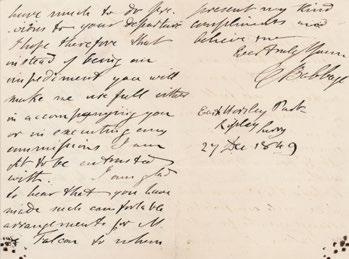 have much to do pre-
vious to your departure
I hope therefore that
instead of being an
impediment you will
make me usefull either
in accompanying you
or in executing any
commissions I am
fit to be entrusted
with. I am glad
to hear that you have
made such comfortable
arrangements for M.
Falcon to whom
present my kind
compliments and
believe me
Dear Yours
C Babbage
East Horsley Park
Ripley Surry
27 Dec 1849